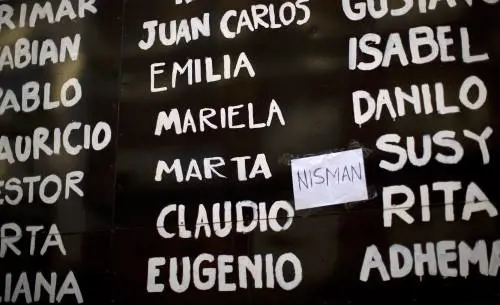 RIMAR
FABIAN
PABLO
AURICIO
ESTOR
RTA
LIANA
JUAN CARLOS
EMILIA
MARIELA
MARTA
CLAUDIO
EUGENIO
GUSTAVO
ISABEL
DANILO
NISMAN
SUSY
RITA
ADHEMA